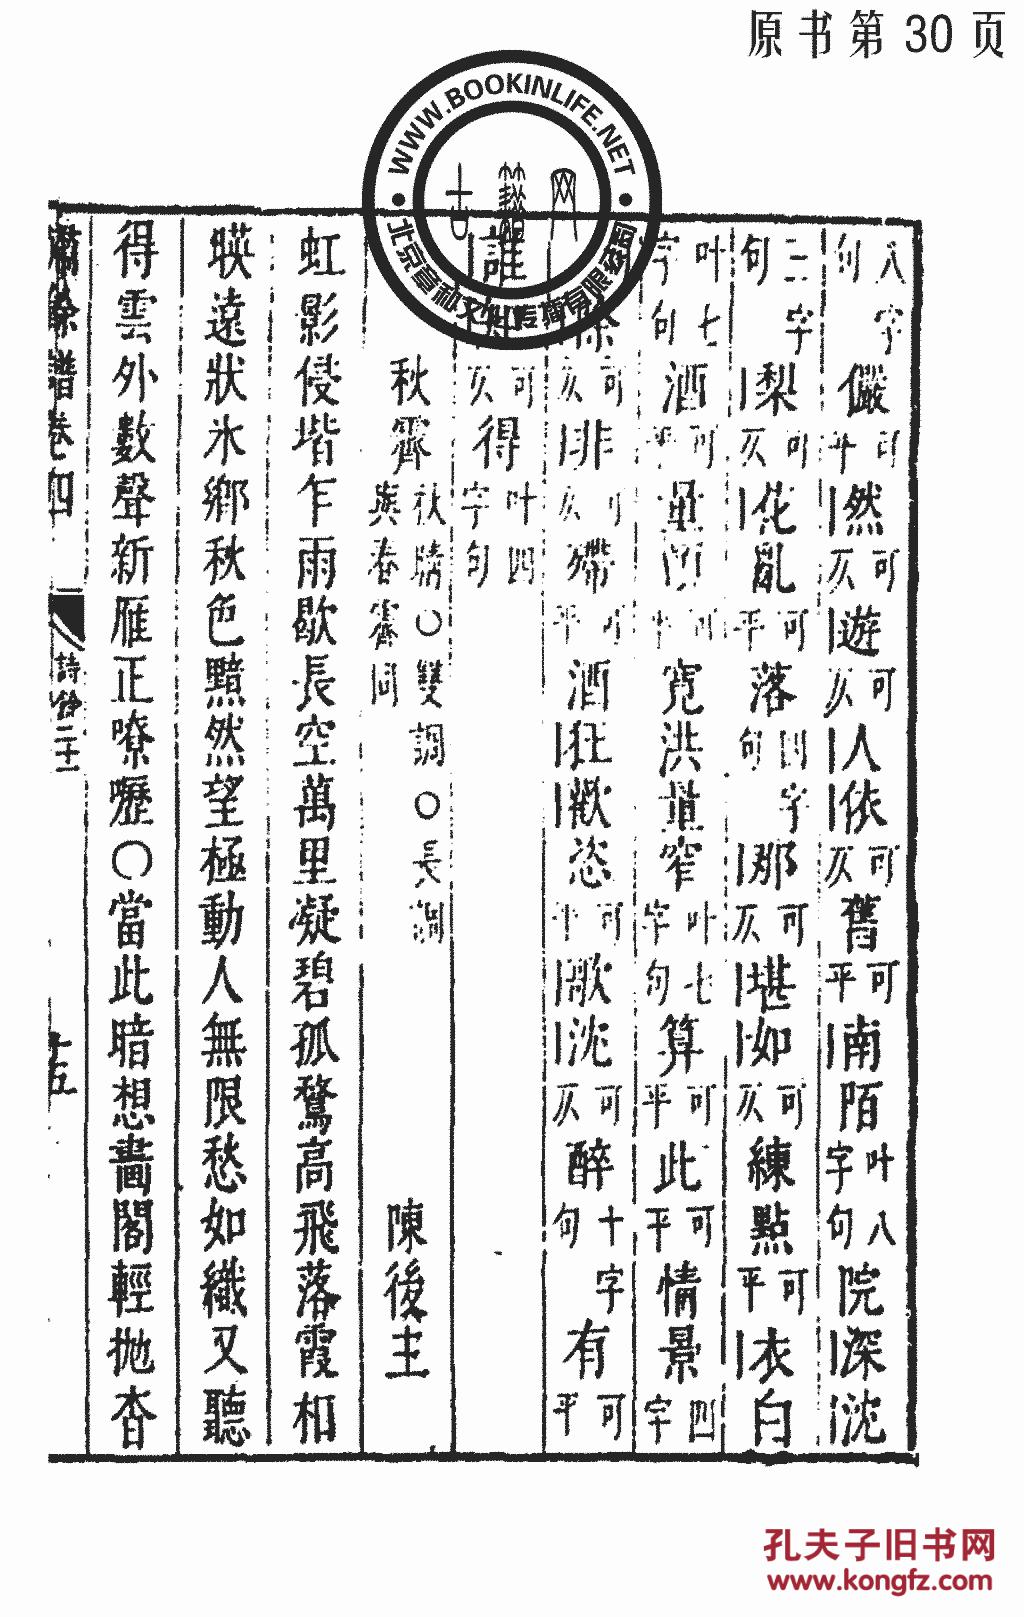 原书第30页
WWW.BOOKINLIFE.NET
北京章和文化传播有限公司
八字句儼可平然可仄遊可仄人依可仄舊可平南陌叶八字句院深沈
二字句梨可仄花亂可平落四字句那可仄堪如可仄練點可平衣白
叶七字句酒可平量可寬洪量窄叶七字句算可平此可平情景四字
除可仄非可仄殢可平酒狂歡恣可平歌沈可仄醉十字句有可平
誰知可仄得叶四字句
秋霽秋晴與春霽同○雙調○長調 陳後主
虹影侵堦乍雨歇長空萬里凝碧孤鶩高飛落霞相
暎遠狀水鄉秋色黯然望極動人無限愁如織又聽
得雲外數聲新雁正嘹嚦○當此暗想畵閣輕抛杳
餘譜卷四 詩餘二十二 十五
孔夫子旧书网
www.kongfz.com